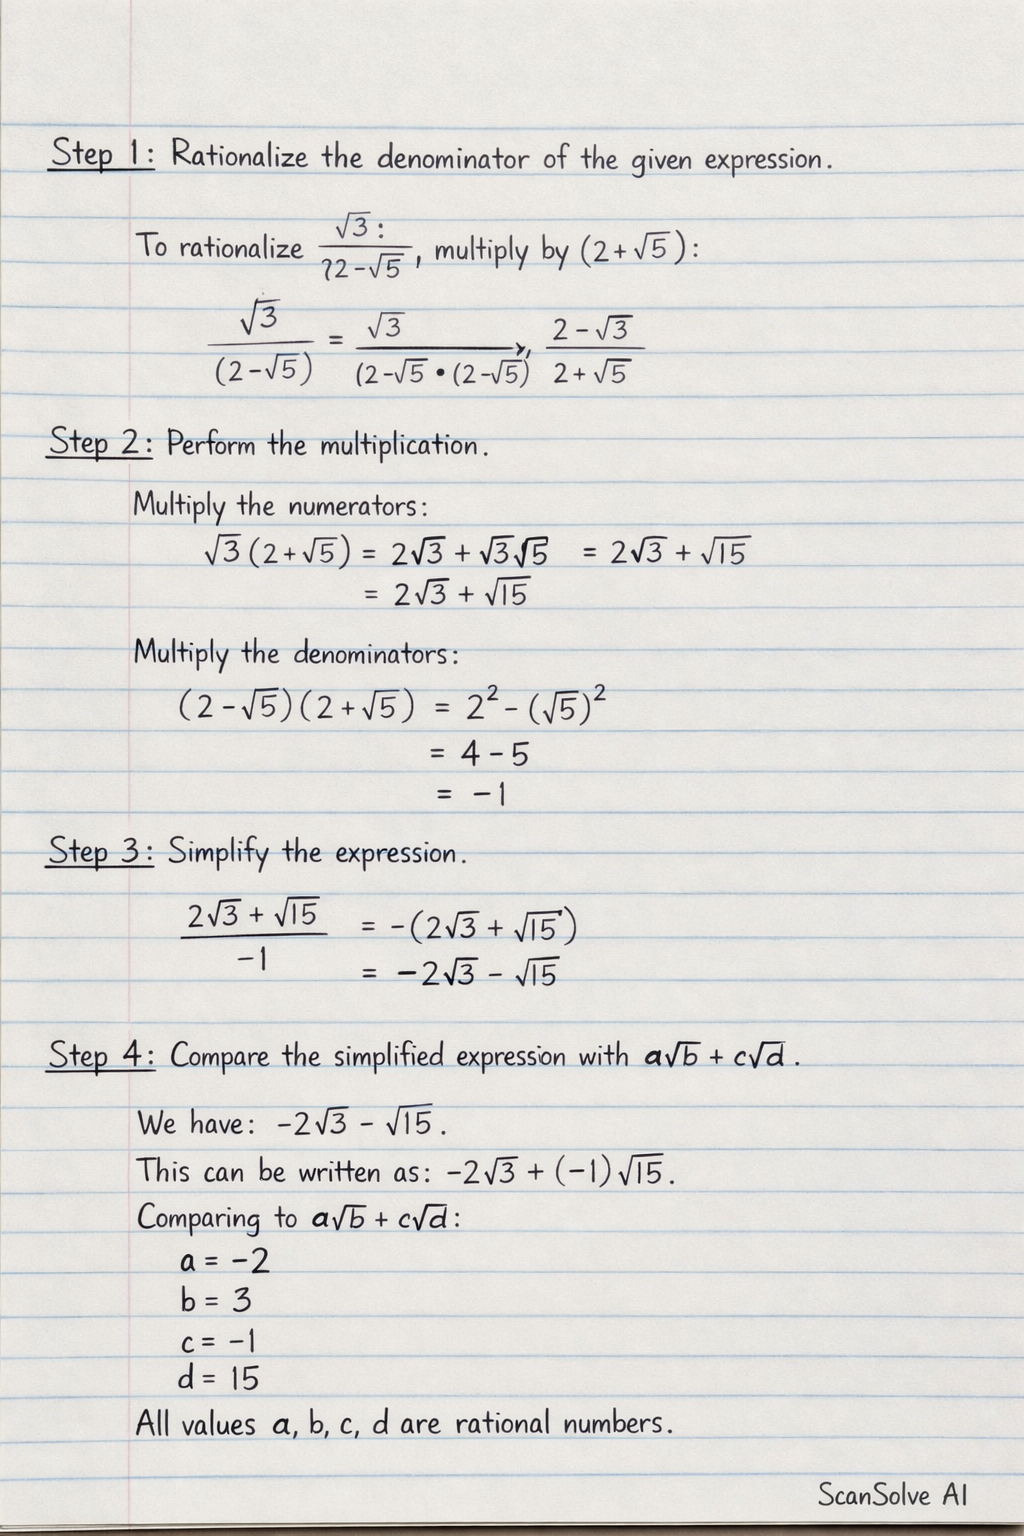 Step 1: Rationalize the denominator of the given expression.
To rationalize √3: / ?2-√5, multiply by (2+√5):
√3 / (2-√5) = √3 / (2-√5 • (2-√5), 2-√3 / 2+√5
Step 2: Perform the multiplication.
Multiply the numerators:
√3(2+√5) = 2√3 + √3√5 = 2√3 + √15
= 2√3 + √15
Multiply the denominators:
(2-√5)(2+√5) = 2² - (√5)²
= 4 - 5
= -1
Step 3: Simplify the expression.
2√3 + √15 / -1 = -(2√3 + √15)
= -2√3 - √15
Step 4: Compare the simplified expression with a√b + c√d.
We have: -2√3 - √15.
This can be written as: -2√3 + (-1)√15.
Comparing to a√b + c√d:
a = -2
b = 3
c = -1
d = 15
All values a, b, c, d are rational numbers.
ScanSolve AI